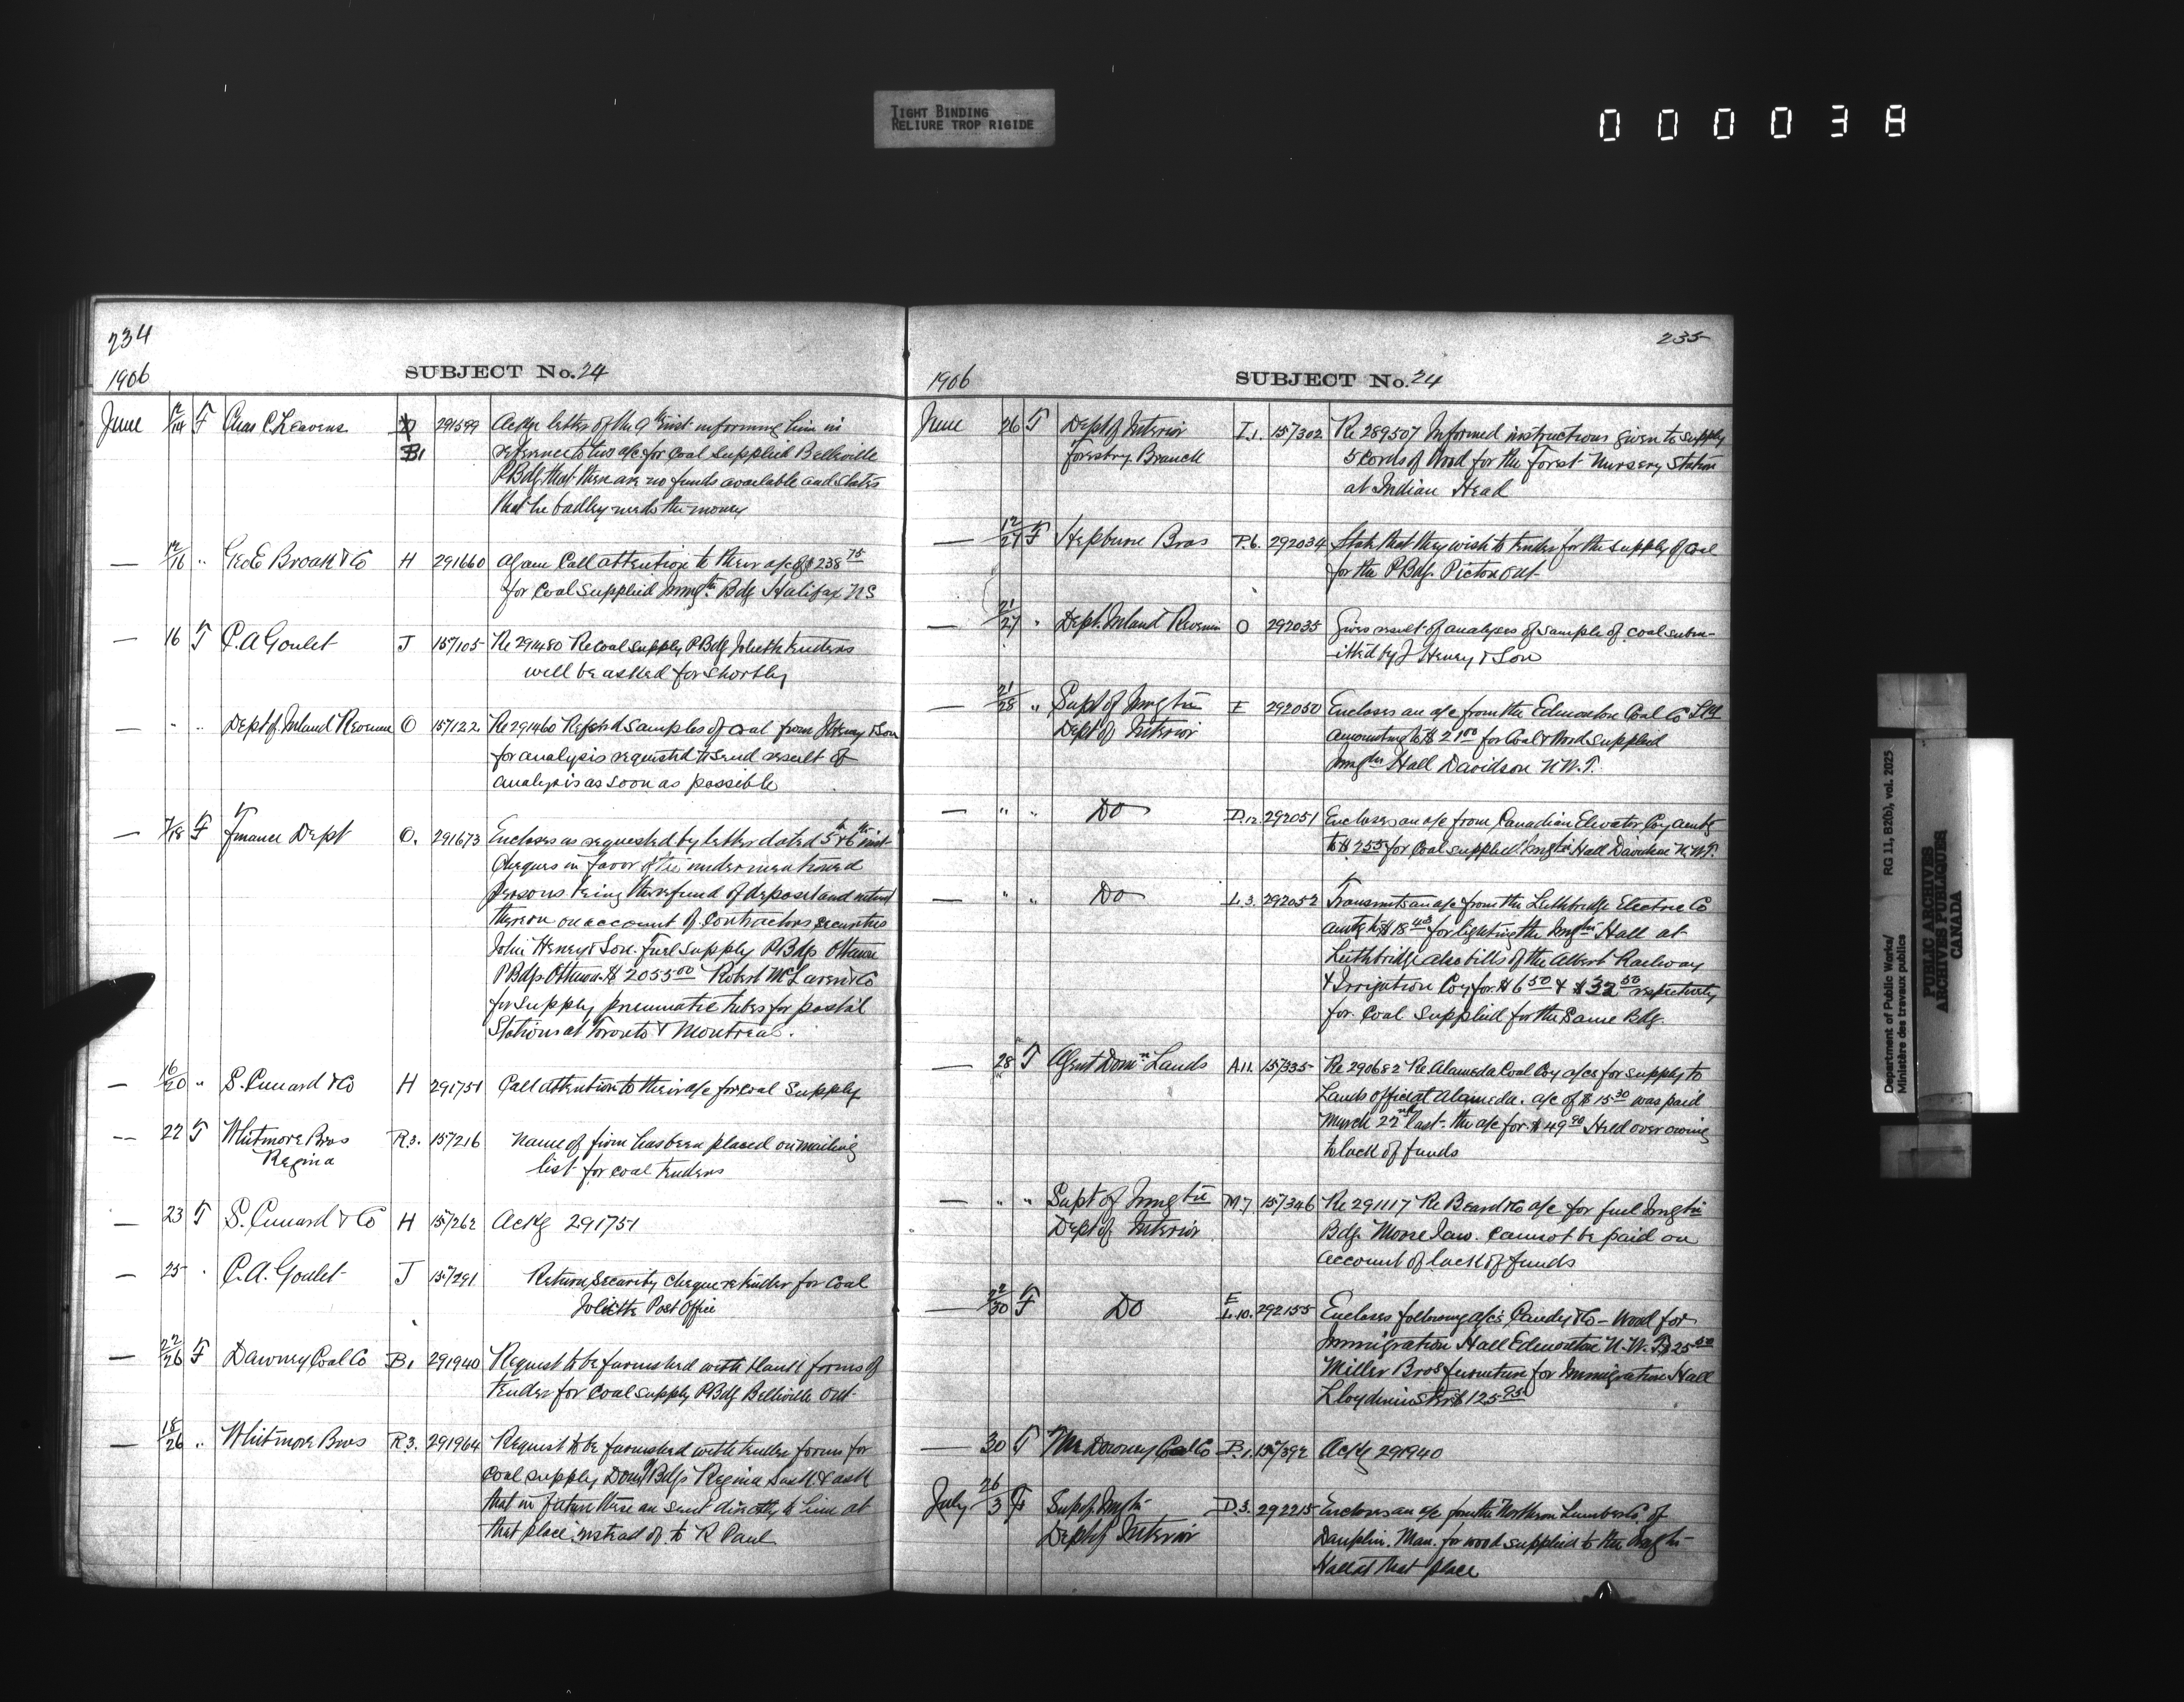 TIGHT BINDING
RELIURE TROP RIGIDE
0 0 0 0 3 8
234
1906
SUBJECT No. 24
June 12/14 F Chas C. Leavens D B1 291599 Ackg letter of the 9th inst informing him in
reference to two a/cs for coal supplied Belleville
P Bdg that there are no funds available and states
that he badly needs the money
— 12/16 " Geo E Broak & Co H 291660 Again Call attention to their a/c of $238 75
for Coal supplied Immgtn Bdg Halifax NS
— 16 T C. A Goulet J 157105 Re 291480 Re coal supply P Bdg Joliette tenders
will be asked for shortly
— " " Dept of Inland Revenue O 157122 Re 291460 samples of coal from J Henry & Son
for analysis requested to send result of
analysis as soon as possible
— 7/18 F Finance Dept O. 291673 Encloses as requested by letter dated 5th & 6th inst
cheques in favor of the undermentioned
persons being the refund of deposit and interest
thereon on account of Contractors securities
John Henry & Son. Fuel supply P Bdgs Ottawa
P Bdgs Ottawa $2055 00 Robert McLaren & Co
for supply pneumatic tubes for postal
Stations at Toronto & Montreal.
— 16/20 " S. Cunard & Co H 291751 Call attention to their a/c for Coal Supply
— 22 T Whitmore Bros R3. 157216 Name of firm has been placed on mailing
Regina list for coal tenders
— 23 T S. Cunard & Co H 157262 Ackg 291751
— 25 " C. A. Goulet J 157291 Return security cheque re tender for Coal
Joliette Post Office
— 22/26 F Downey Coal Co B1 291940 Request to be furnished with blank forms of
tender for coal supply P Bdg Belleville Ont
— 18/26 " Whitmore Bros R3. 291964 Request to be furnished with tender forms for
Coal supply Domn Bdgs Regina Sask & ask
that in future these are sent directly to him at
that place instead of to R Paul
235
1906
SUBJECT No. 24
June 26 T Dept of Interior I.1. 157302 Re 289507 Informed instructions given to supply
Forestry Branch 5 Cords of Wood for the Forest Nursery Station
at Indian Head
— 12/27 F Hepburn Bros P.6. 292034 State that they wish to tender for the supply of coal
for the P Bdg. Picton Ont
— 21/27 " Dept. Inland Revenue O 292035 Gives result of analyses of sample of coal subm-
-itted by J Henry & Son
— 21/28 " Supt of Immgtn E 292050 Encloses an a/c from the Edmonton Coal Co Ltd
Dept of Interior amounting to $21 00 for Coal & Wood supplied
Immgtn Hall Davidson N.W.T.
— " " Do D.12. 292051 Encloses an a/c from Canadian Elevator Coy amtg
to $255 for Coal supplied Immgtn Hall Davidson N.W.T.
— " " Do L.3. 292052 Transmits an a/c from the Lethbridge Electric Co
amtg to $18 43 for lighting the Immgtn Hall at
Lethbridge also bills of the Albert Railway
& Irrigation Coy for $6 50 & $32 50 respectively
for Coal supplied for the Same Bdg.
— 28 T Agent Domn Lands A11. 157335 Re 290682 Re Alameda Coal Coy a/cs for supply to
Lands office at Alameda. a/c of $15 30 was paid
March 22nd last. the a/c for $49 90 Held over owing
to lack of funds
— " " Supt of Immgtn M7 157346 Re 291117 Re Beard & Co a/c for fuel Immgtn
Dept of Interior Bdg. Moose Jaw. Cannot be paid on
account of lack of funds
— 22/30 F Do E L.10. 292155 Encloses following a/cs & Co — Wood for
Immigration Hall Edmonton N.W.T $25 50
Miller Bros furniture for Immigration Hall
Lloydminster $125 95
— 30 T The Downey Coal Co B.1. 157392 Ackg 291940
July 26/3 F Supt Immgtn D3. 292215 Encloses an a/c from the Northern Lumber Co. of
Dept of Interior Dauphin. Man. for wood supplied to the Immgtn
Hall at that place
Department of Public Works/ RG 11, B2(b), vol. 2025
Ministère des travaux publics
PUBLIC ARCHIVES
ARCHIVES PUBLIQUES
CANADA